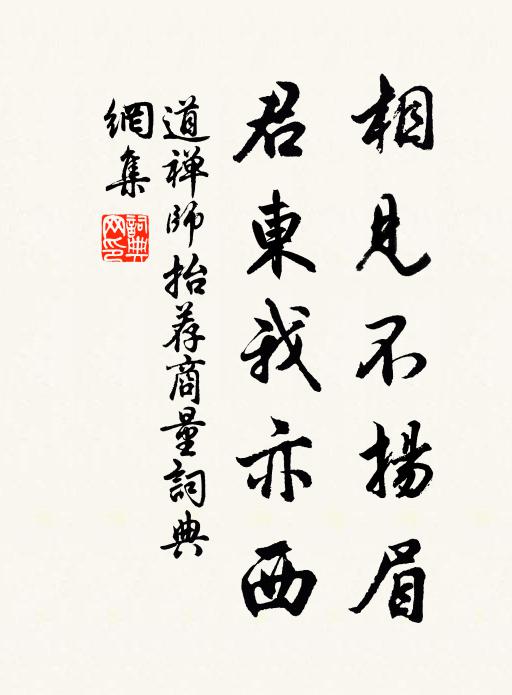 相見不揚眉
君東我亦西
道禅師抬荐商量詞典
網集
詞典
网印